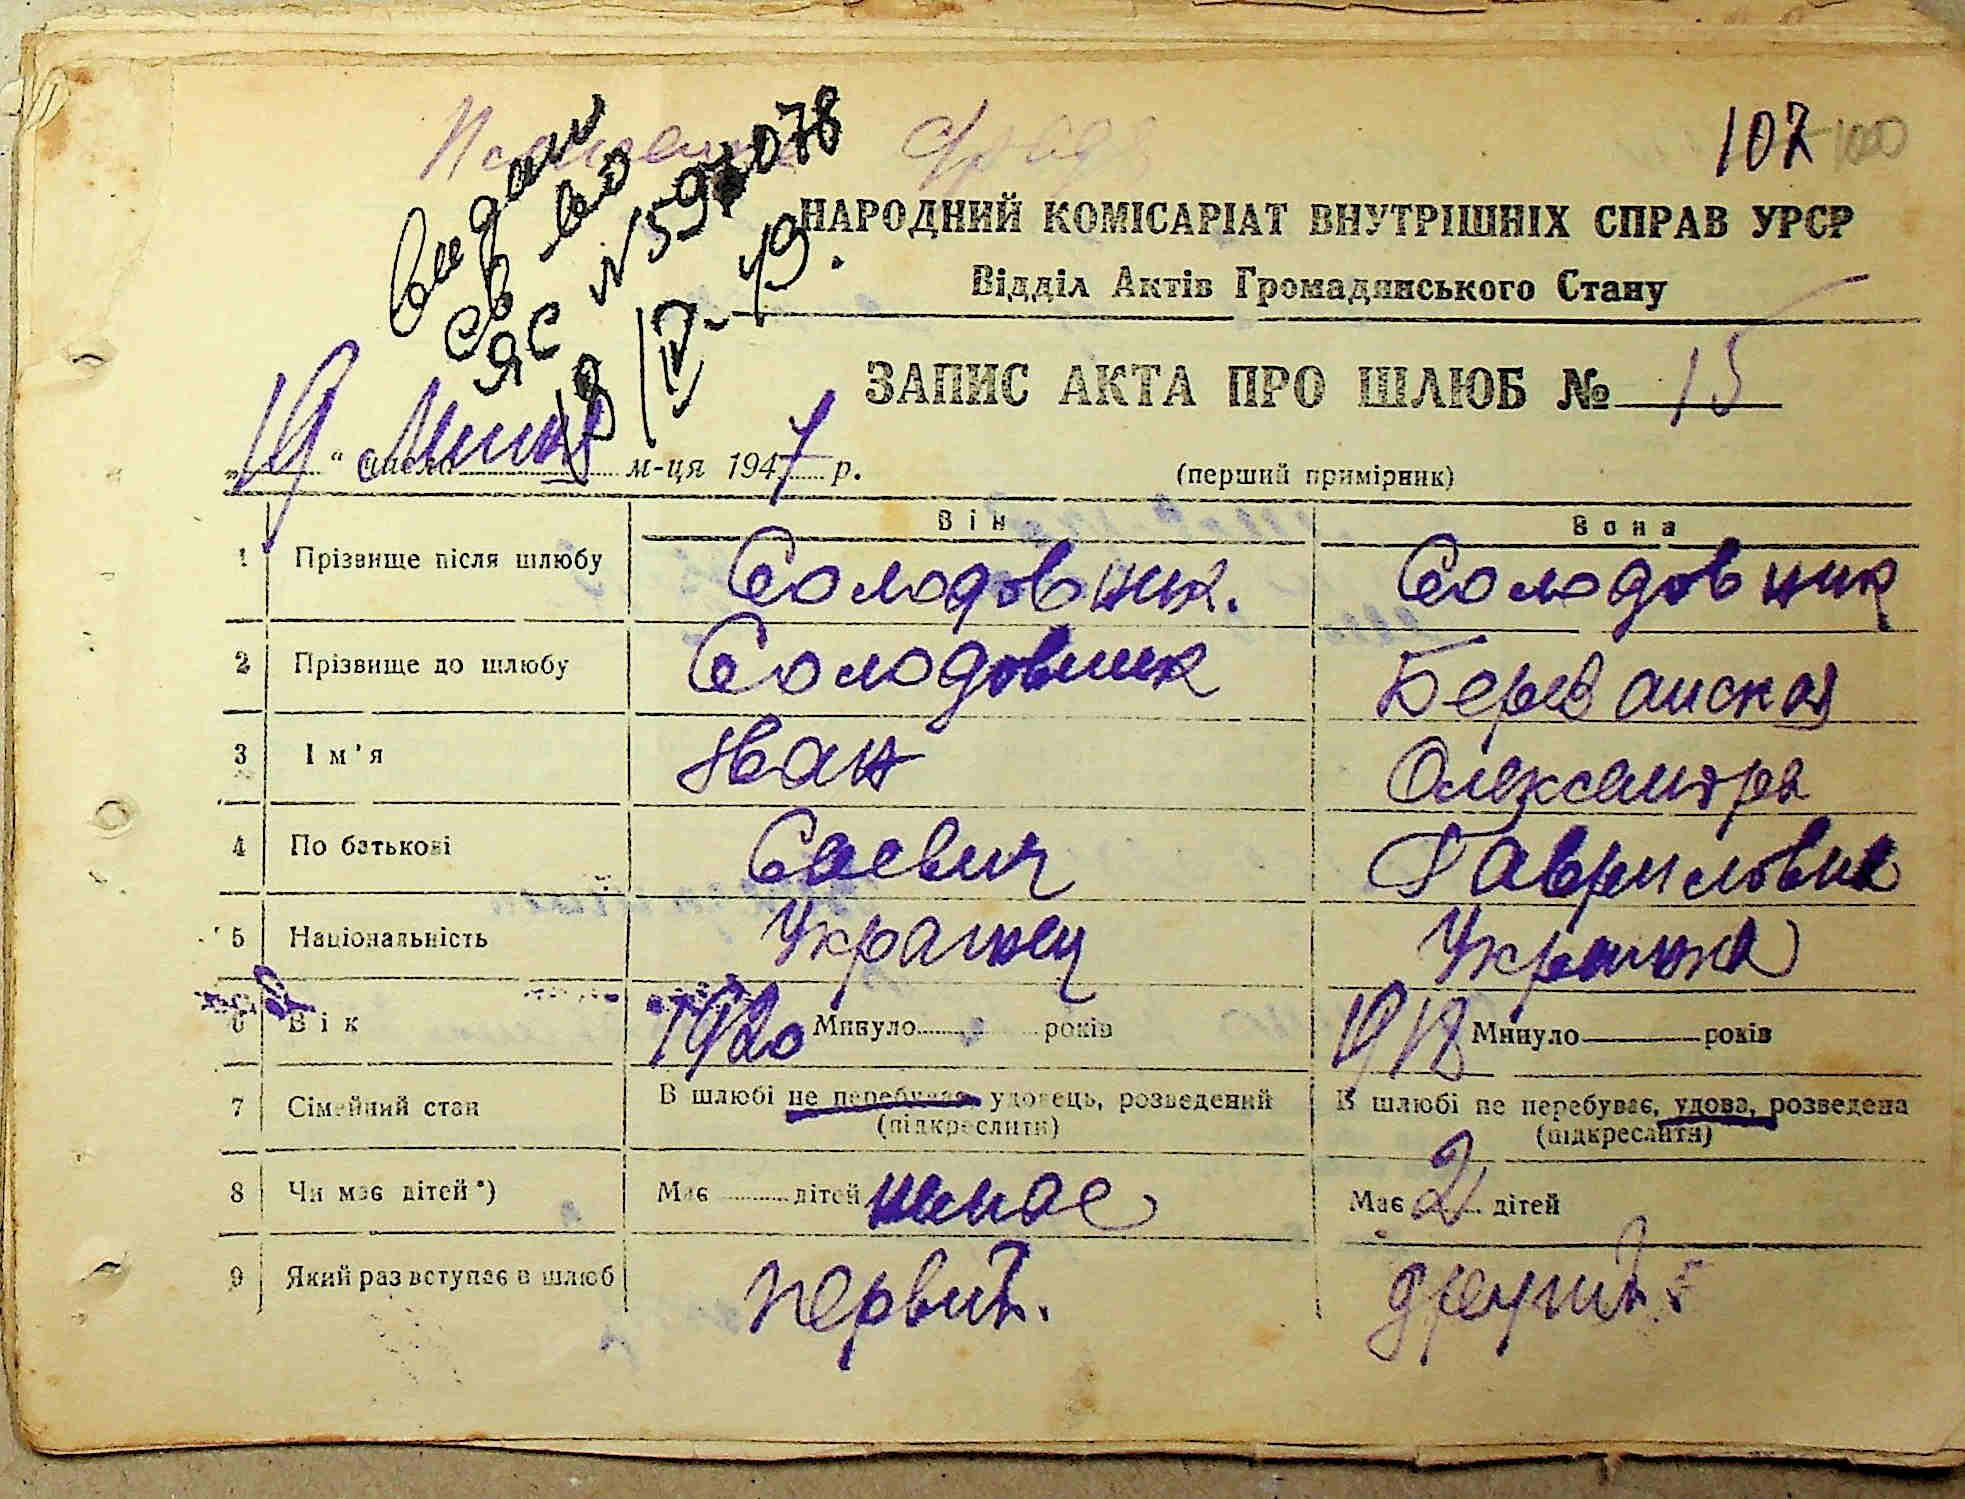 107 100
видан
св во
ЯС №
18/IV-
НАРОДНИЙ КОМІСАРІАТ ВНУТРІШНІХ СПРАВ УРСР
Відділ Актів Громадянського Стану
ЗАПИС АКТА ПРО ШЛЮБ № 15
„19“ числа м-ця 1947 р.
(перший примірник)
Він Вона
1 Прізвище після шлюбу Солодовник. Солодовник
2 Прізвище до шлюбу Солодовник
3 Ім'я Іван Олександра
4 По батькові Саевич Гавриловна
5 Національність Украінец Украінка
6 Вік 1920 Минуло років 1918 Минуло років
7 Сімейний стан В шлюбі не перебуває, удовець, розведений (підкреслити) В шлюбі не перебуває, удова, розведена (підкреслити)
8 Чи має дітей*) Має дітей немае Має 2 дітей
9 Який раз вступає в шлюб первий. другий